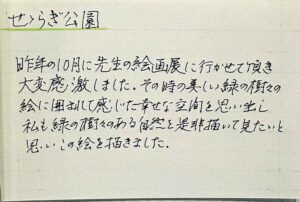 せゝらぎ公園
昨年の10月に先生の絵画展に行かせて頂き
大変感激しました。その時の美しい緑の樹々の
絵に囲まれて感じた幸せな空間を思い出し
私も緑の樹々のある自然を是非描いて見たいと
思いこの絵を描きました.